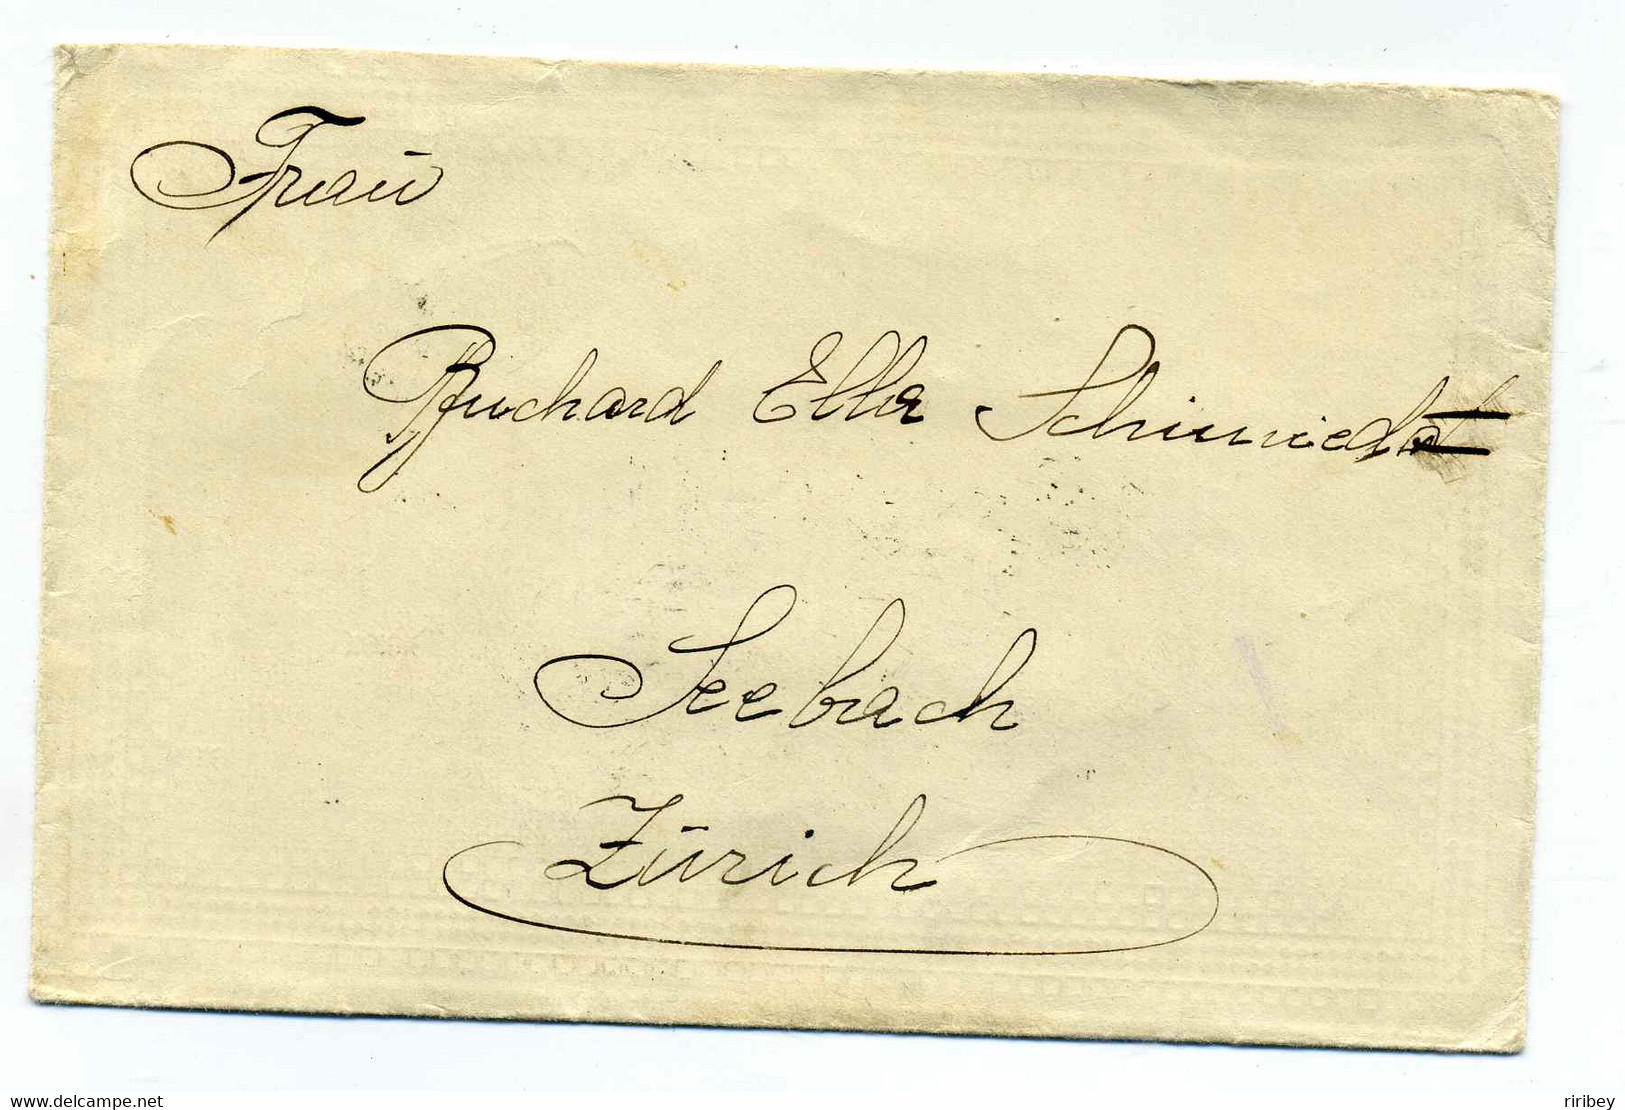 Frau
Ruchard Ella Schmiedt
Seebach
Zürich
the-delcampe.net
riribey